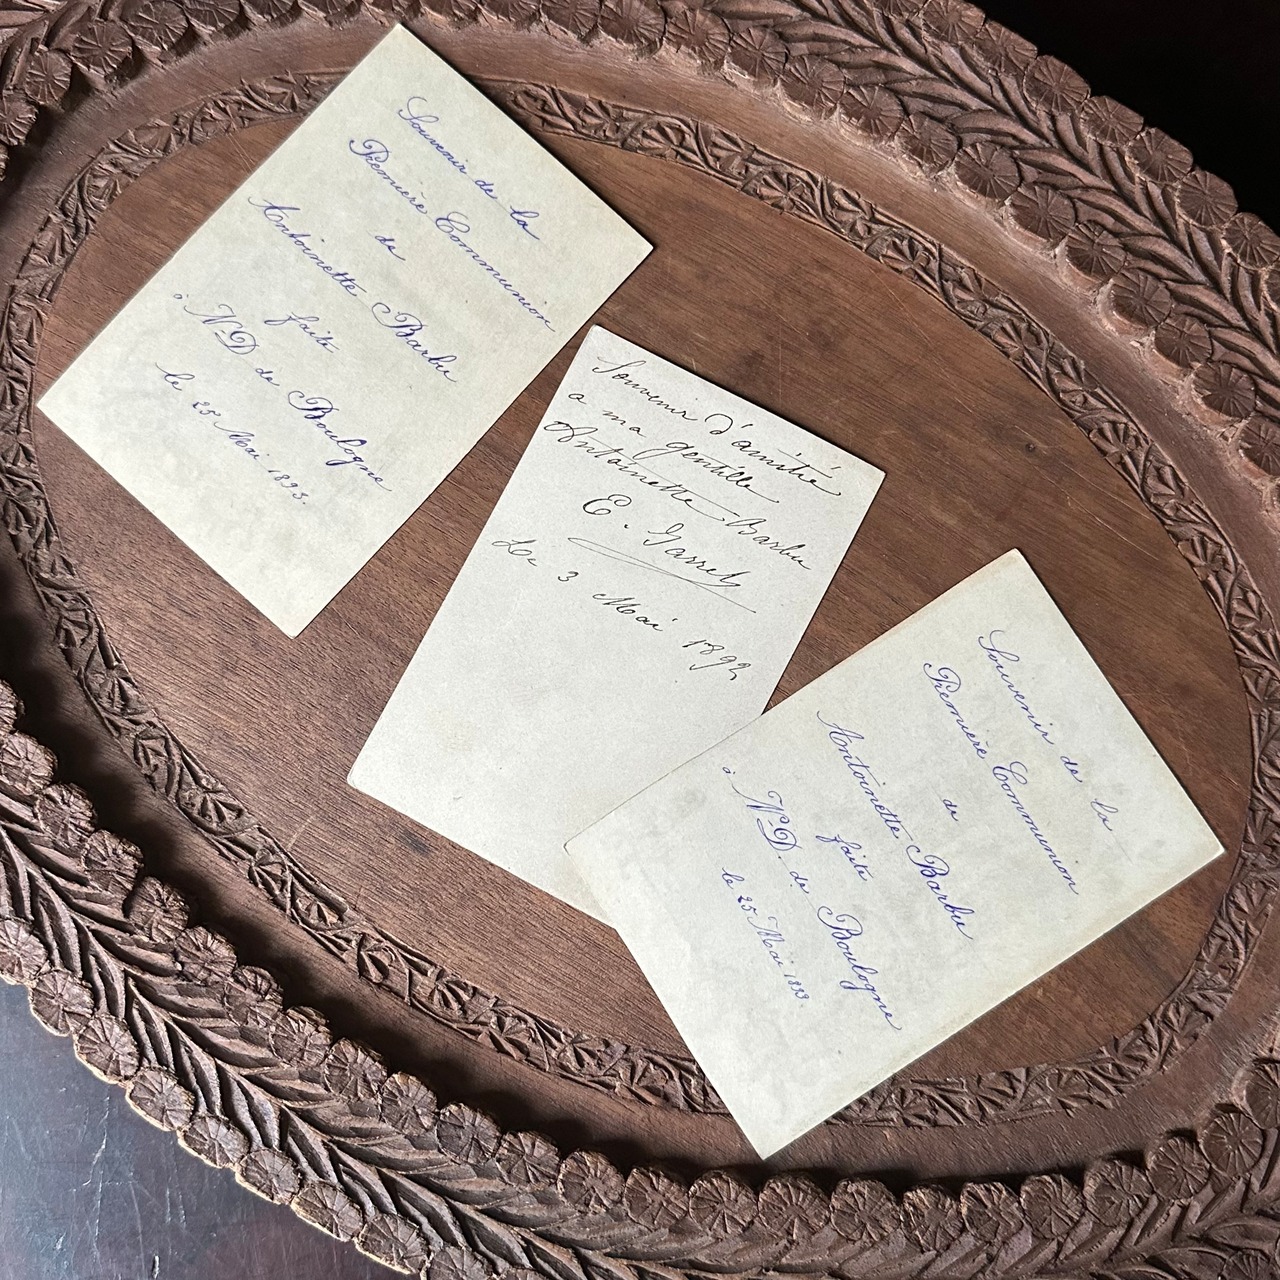 Souvenir de la
Première Communion
de
Antoinette Barbu
faite
à
N-D de Boulogne
le 25 Mai 1893.
Souvenir d'amitié
a ma gentille
Antoinette Barbu
E. Garret
Le 3 Mai 1892
Souvenir de la
Première Communion
de
Antoinette Barbu
faite
à
N-D. de Boulogne
le 25 Mai 1893.